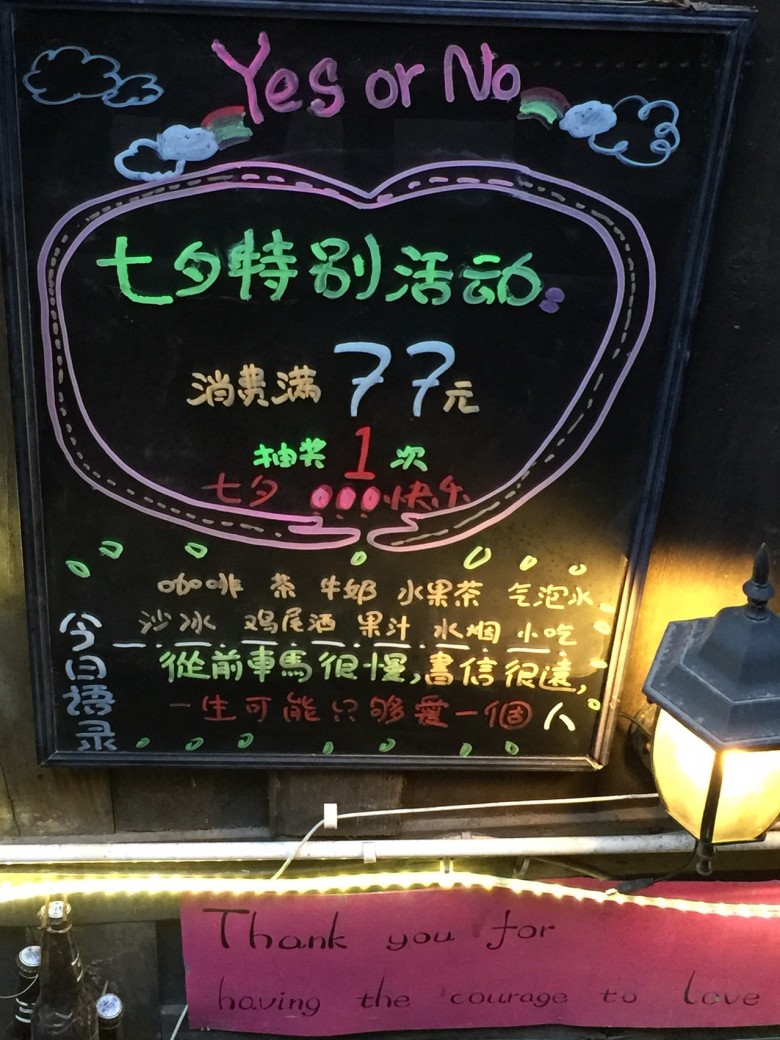 Yes or No
七夕特别活动
消费满77元
抽奖1次
七夕 快乐
咖啡 茶 牛奶 水果茶 气泡水
沙冰 鸡尾酒 果汁 水烟 小吃
今日语录
從前車馬很慢,書信很遠,
一生可能只够愛一個人
Thank you for
having the courage to love